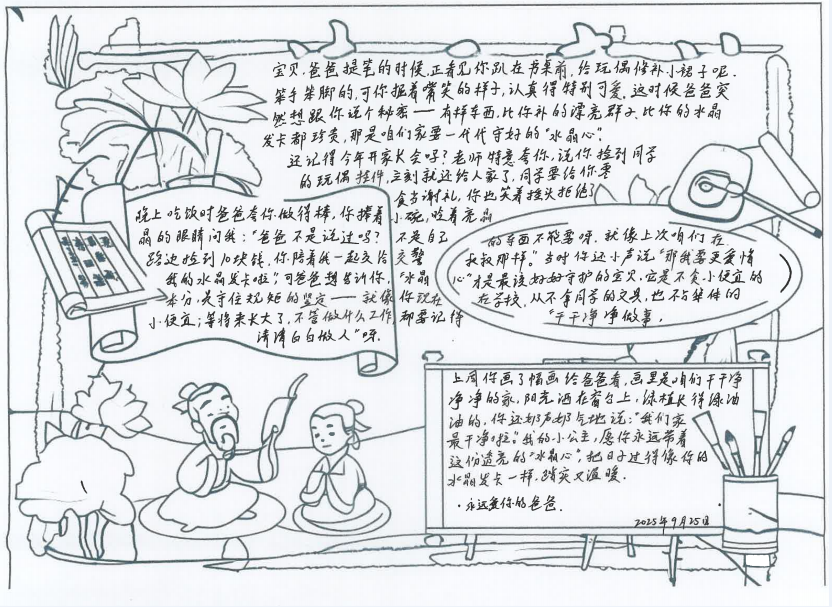 宝贝,爸爸提笔的时候,正看见你趴在书桌前,给玩偶修补小裙子呢.
笨手笨脚的,可你抿着嘴笑的样子,认真得特别可爱.这时候爸爸突
然想跟你说个秘密——有样东西,比你补的漂亮群子、比你的水晶
发卡都珍贵,那是咱们家要一代代守好的“水晶心”.
还记得今年开家长会吗?老师特意夸你,说你捡到同学
的玩偶挂件,立刻就还给人家了,同学要给你零
食当谢礼,你也笑着摇头拒绝了
晚上吃饭时爸爸夸你做得棒,你捧着小碗,眨着亮晶
晶的眼睛问我:“爸爸不是说过吗?不是自己的东西不能要呀.就像上次咱们在
路边捡到10块钱,你陪着我一起交给交警叔叔那样.”当时你还小声说:“那我要更爱惜
我的水晶发卡啦”,可爸爸想告诉你,“水晶心”才是最该好好守护的宝贝,它是不贪小便宜的
本分,是守住规矩的坚定——就像你现在在学校,从不拿同学的文具,也不占集体的
小便宜;等将来长大了,不管做什么工作,都要记得“干干净净做事,
清清白白做人”呀.
上周你画了幅画给爸爸看,画里是咱们干干净
净净的家,阳光洒在窗台上,绿植长得绿油
油的,你还奶声奶气地说:“我们家
最干净啦.”我的小公主,愿你永远带着
这份透亮的“水晶心”,把日子过得像你的
水晶发卡一样,踏实又温暖.
·永远爱你的爸爸.
2025年9月25日